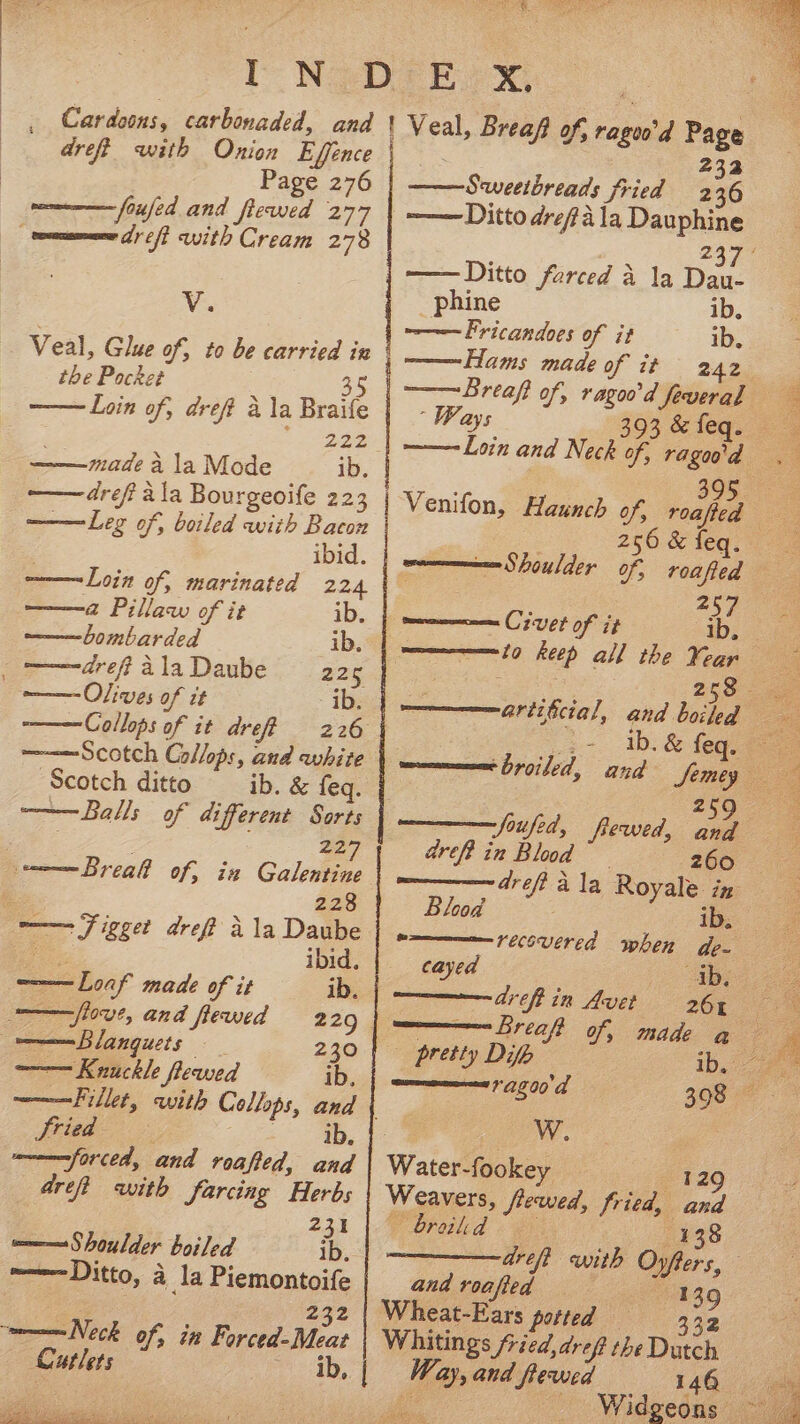 INDEX.
Cardoons, carbonaded, and
dreſt with Onion Eſſence
Page 276
——ſouſed and ſtewed 277
——dreſt with Cream 278
V.
Veal, Glue of, to be carried in
the Pocket 35
——Loin of, dreſt à la Braiſe
222
——made à la Mode ib.
——dreſt à la Bourgeoiſe 223
——Leg of, boiled with Bacon
ibid.
——Loin of, marinated 224
——a Pillaw of it ib.
——bombarded ib.
——dreſt à la Daube 225
——Olives of it ib.
——Collops of it dreſt 226
——Scotch Collops, and white
Scotch ditto ib. & ſeq.
——Balls of different Sorts
227
——Breaſt of, in Galentine
228
——Figget dreſt à la Daube
ibid.
——Loaf made of it ib.
——ſtove, and ſtewed 229
——Blanquets 230
——Knuckle ſtewed ib.
——Fillet, with Collops, and
fried ib.
——forced, and roaſted, and
dreſt with farcing Herbs
231
——Shoulder boiled ib.
——Ditto, à la Piemontoiſe
232
——Neck of, in Forced-Meat
Cutlets ib.
Veal, Breaſt of, ragoo'd Page
232
——Sweetbreads fried 236
——Ditto dreſt à la Dauphine
237
——Ditto farced à la Dau-
phine ib.
——Fricandoes of it ib.
——Hams made of it 242
——Breaſt of, ragoo'd ſeveral
Ways 393 & ſeq.
——Loin and Neck of, ragoo'd
395
Veniſon, Haunch of, roaſted
256 & ſeq.
——Shoulder of, roaſted
257
——Civet of it ib.
——to keep all the Year
258
——artificial, and boiled
ib. & ſeq.
——broiled, and ſemey
259
——ſouſed, ſtewed, and
dreſt in Blood 260
——dreſt à la Royale in
Blood ib.
——recovered when de-
cayed ib.
——dreſt in Avet 261
——Breaſt of, made a
pretty Diſh ib.
——ragoo'd 398
W.
Water-ſookey 129
Weavers, ſtewed, fried, and
broiled 138
——dreſt with Oyſters,
and roaſted 139
Wheat-Ears potted 332
Whitings fried, dreſt the Dutch
Way, and ſtewed 146
Widgeons